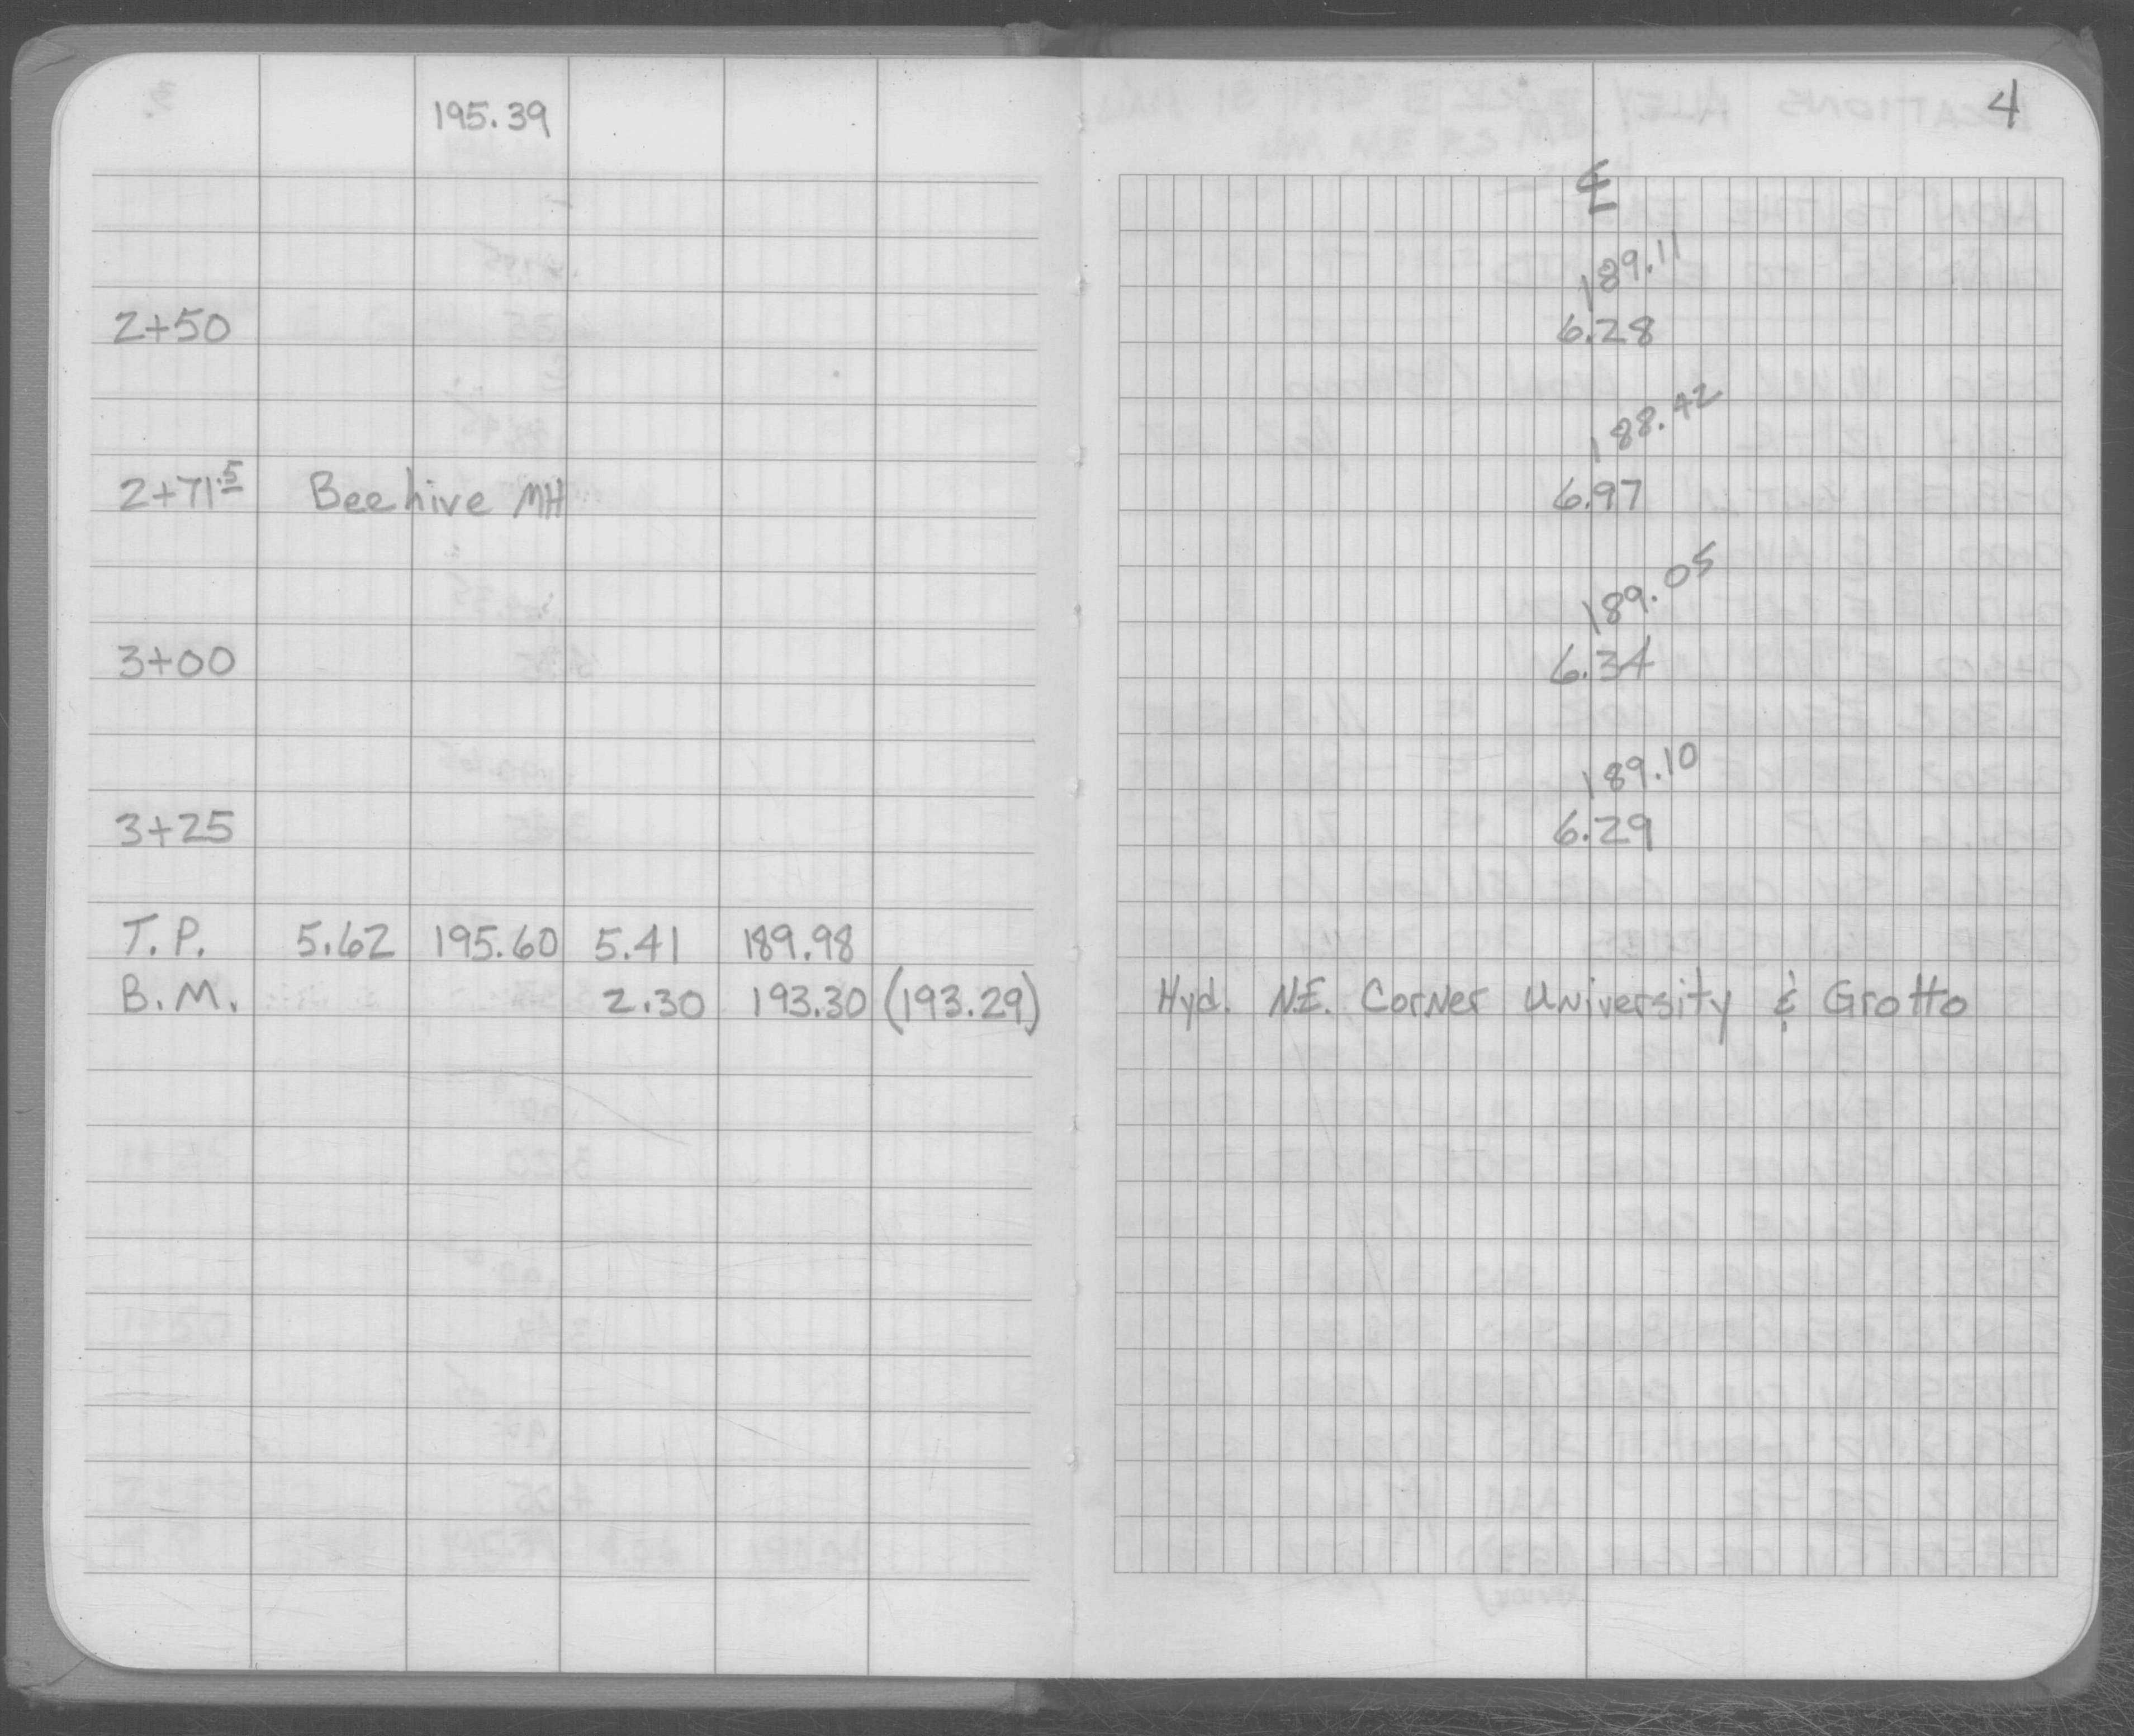 195.39
4
℄
189.11
2+50 6.28
188.42
2+71.5 Beehive MH 6.97
189.05
3+00 6.34
189.10
3+25 6.29
T.P. 5.62 195.60 5.41 189.98
B.M. 2.30 193.30 (193.29) Hyd. N.E. Corner University & Grotto